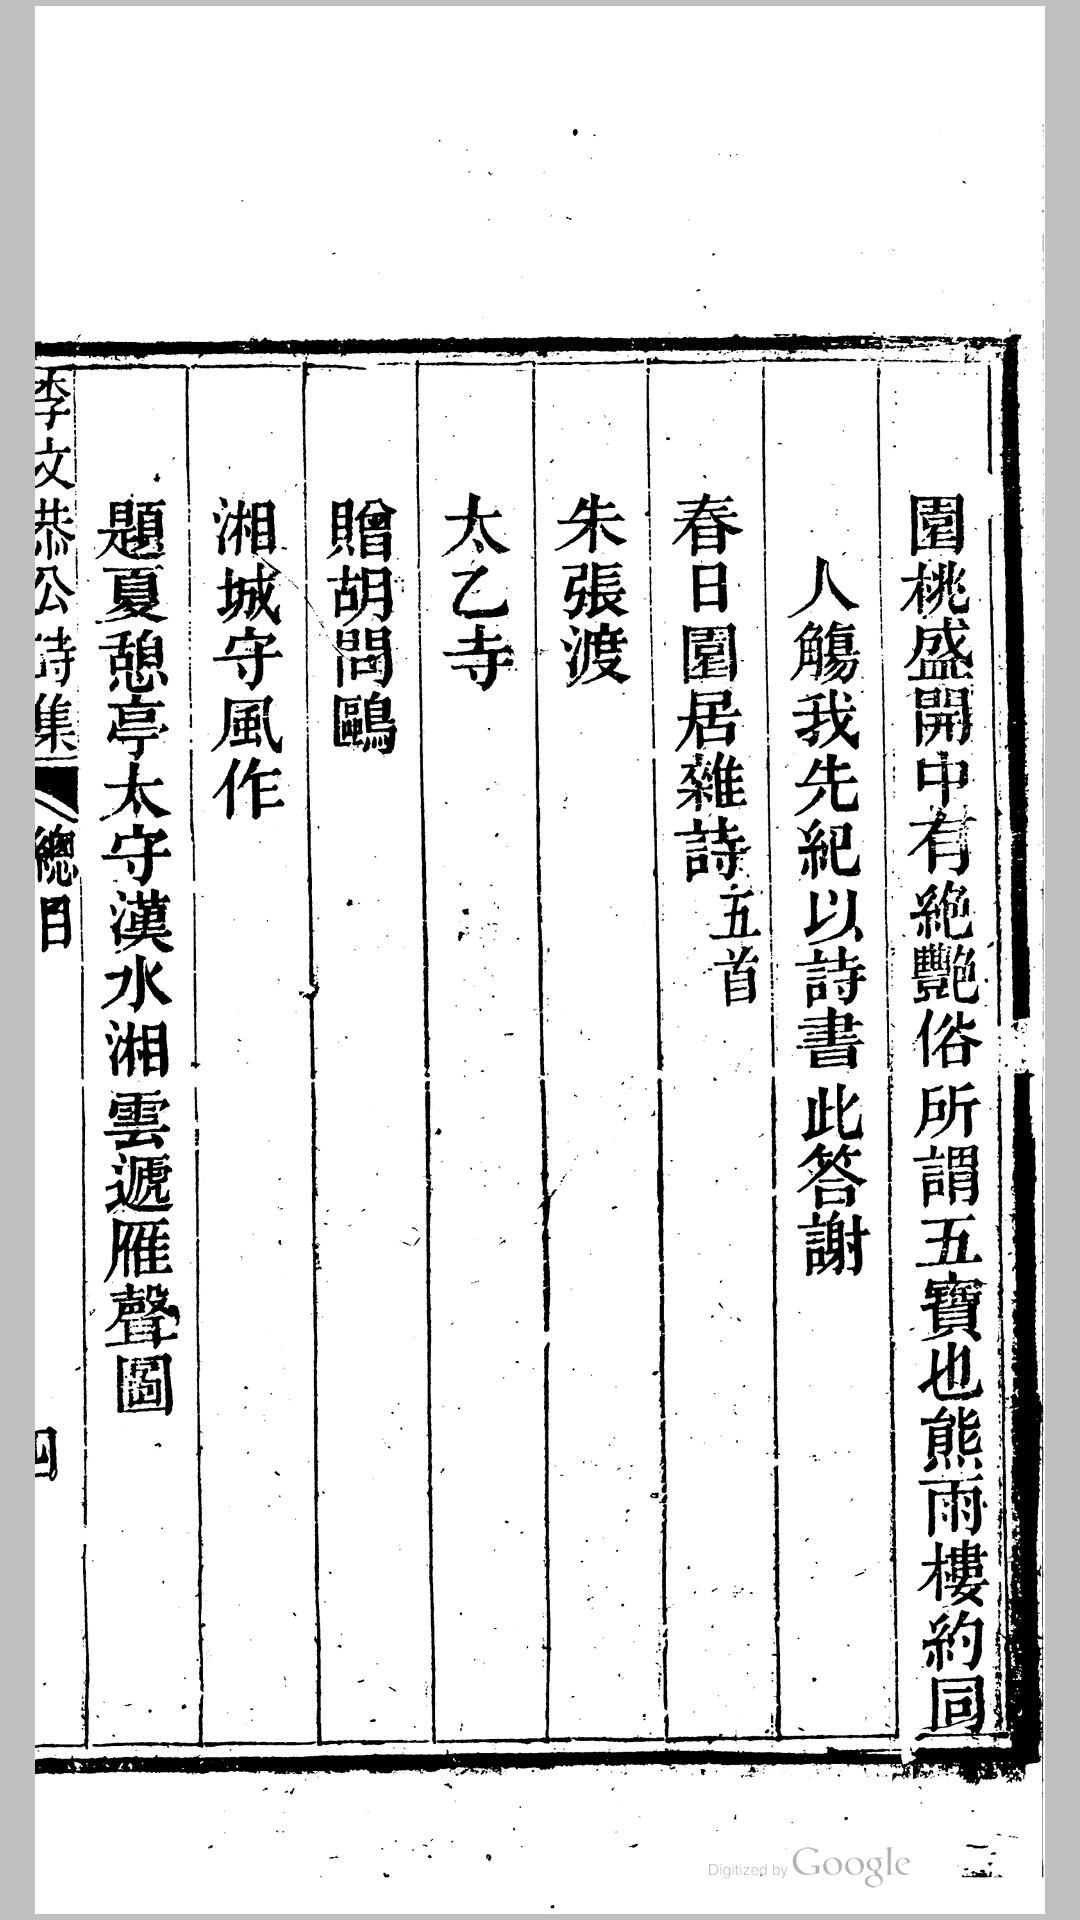 園桃盛開中有絶豔俗所謂五寶也熊雨樓約同
人觴我先紀以詩書此答謝
春日園居雜詩五首
朱張渡
太乙寺
贈胡問鷗
湘城守風作
題夏憩亭太守漢水湘雲遞雁聲圖
李文恭公詩集 總目 四
Digitized by Google